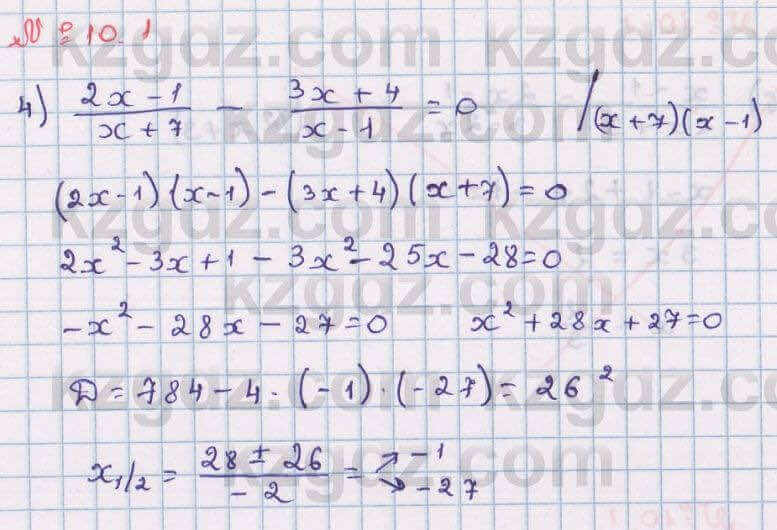 № 10.1
4) (2x - 1)/(x + 7) - (3x + 4)/(x - 1) = 0 /(x + 7)(x - 1)
(2x-1)(x-1) - (3x+4)(x+7) = 0
2x² - 3x + 1 - 3x² - 25x - 28 = 0
-x² - 28x - 27 = 0 x² + 28x + 27 = 0
D = 784 - 4 · (-1) · (-27) = 26²
x₁/₂ = (28 ± 26)/(-2) = ↗ -1 ↘ -27
kzgdz.com
kzgdz.com
kzgdz.com
kzgdz.com
kzgdz.com
kzgdz.com
kzgdz.com